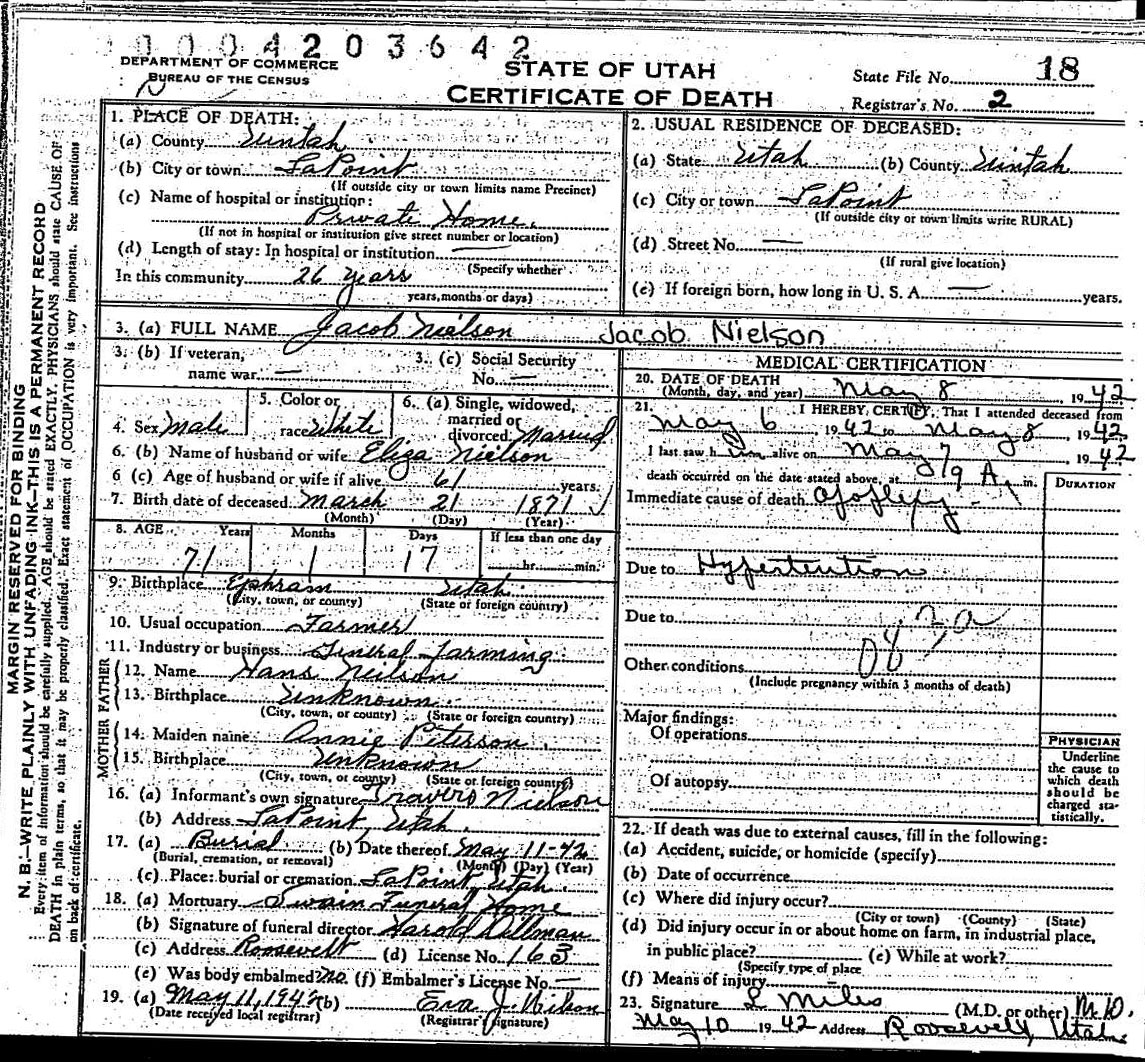 00042 03642
DEPARTMENT OF COMMERCE
BUREAU OF THE CENSUS
STATE OF UTAH
CERTIFICATE OF DEATH
State File No. 18
Registrar's No. 2
MARGIN RESERVED FOR BINDING
N. B.—WRITE PLAINLY WITH UNFADING INK—THIS IS A PERMANENT RECORD
Every item of information should be carefully supplied. AGE should be stated EXACTLY. PHYSICIANS should state CAUSE OF
DEATH in plain terms, so that it may be properly classified. Exact statement of OCCUPATION is very important. See instructions
on back of certificate.
1. PLACE OF DEATH:
(a) County Uintah
(b) City or town LaPoint
(If outside city or town limits name Precinct)
(c) Name of hospital or institution:
Private Home.
(If not in hospital or institution give street number or location)
(d) Length of stay: In hospital or institution —
(Specify whether
In this community 26 years
years, months or days)
2. USUAL RESIDENCE OF DECEASED:
(a) State Utah (b) County Uintah
(c) City or town LaPoint
(If outside city or town limits write RURAL)
(d) Street No. —
(If rural give location)
(e) If foreign born, how long in U. S. A. — years.
3. (a) FULL NAME Jacob Nielson Jacob Nielson
3. (b) If veteran,
name war —
3. (c) Social Security
No. —
4. Sex Male
5. Color or
race White
6. (a) Single, widowed,
married or
divorced Married
6. (b) Name of husband or wife Eliza Nielson
6 (c) Age of husband or wife if alive 61 years.
7. Birth date of deceased March 21 1871
(Month) (Day) (Year)
8. AGE Years Months Days If less than one day
71 1 17 hr. min.
9. Birthplace Ephram Utah
(City, town, or county) (State or foreign country)
10. Usual occupation Farmer
11. Industry or business General farming
FATHER
12. Name Hans Neilson
13. Birthplace Unknown
(City, town, or county) (State or foreign country)
MOTHER
14. Maiden name Annie Peterson
15. Birthplace Unknown
(City, town, or county) (State or foreign country)
16. (a) Informant's own signature Travers Nielson
(b) Address LaPoint, Utah.
17. (a) Burial (b) Date thereof May 11-42
(Burial, cremation, or removal) (Month) (Day) (Year)
(c) Place: burial or cremation LaPoint, Utah.
18. (a) Mortuary Swain Funeral Home
(b) Signature of funeral director Harold Dillman
(c) Address Roosevelt (d) License No. 163
(e) Was body embalmed? no (f) Embalmer's License No. —
19. (a) May 11, 1942 (b) Eva J. Nilson
(Date received local registrar) (Registrar's signature)
MEDICAL CERTIFICATION
20. DATE OF DEATH
(Month, day, and year) May 8 1942
21. I HEREBY CERTIFY, That I attended deceased from
May 6 1942 to May 8, 1942.
I last saw him alive on May 7 1942
death occurred on the date stated above, at 9 A. m.
DURATION
Immediate cause of death Apoplexy
Due to Hypertention
Due to
Other conditions
(Include pregnancy within 3 months of death)
Major findings:
Of operations
Of autopsy
PHYSICIAN
Underline
the cause to
which death
should be
charged sta-
tistically.
22. If death was due to external causes, fill in the following:
(a) Accident, suicide, or homicide (specify)
(b) Date of occurrence
(c) Where did injury occur?
(City or town) (County) (State)
(d) Did injury occur in or about home on farm, in industrial place,
in public place? (e) While at work?
(Specify type of place
(f) Means of injury
23. Signature L Miles (M.D. or other) M.D.
May 10 1942 Address Roosevelt, Utah.